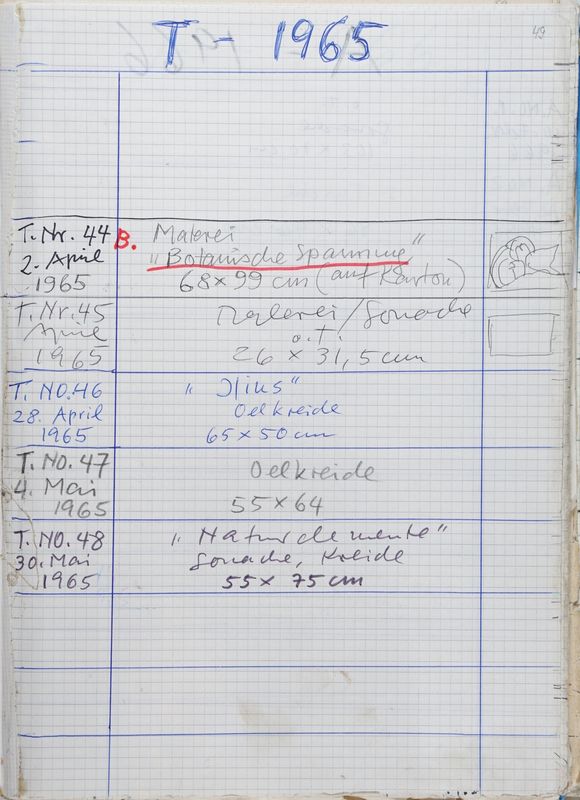 T - 1965
49
T. Nr. 44 B. Malerei
2. April „Botanische Spannung“
1965 68 x 99 cm (auf Karton)
T. Nr. 45 Malerei/Gouache
April o.T.
1965 26 x 31,5 cm
T. NO. 46
28. April Oelkreide
1965 65 x 50 cm
T. NO. 47 Oelkreide
4. Mai
1965 55 x 64
T. NO. 48 „Naturelemente“
30. Mai Gouache, Kreide
1965 55 x 75 cm